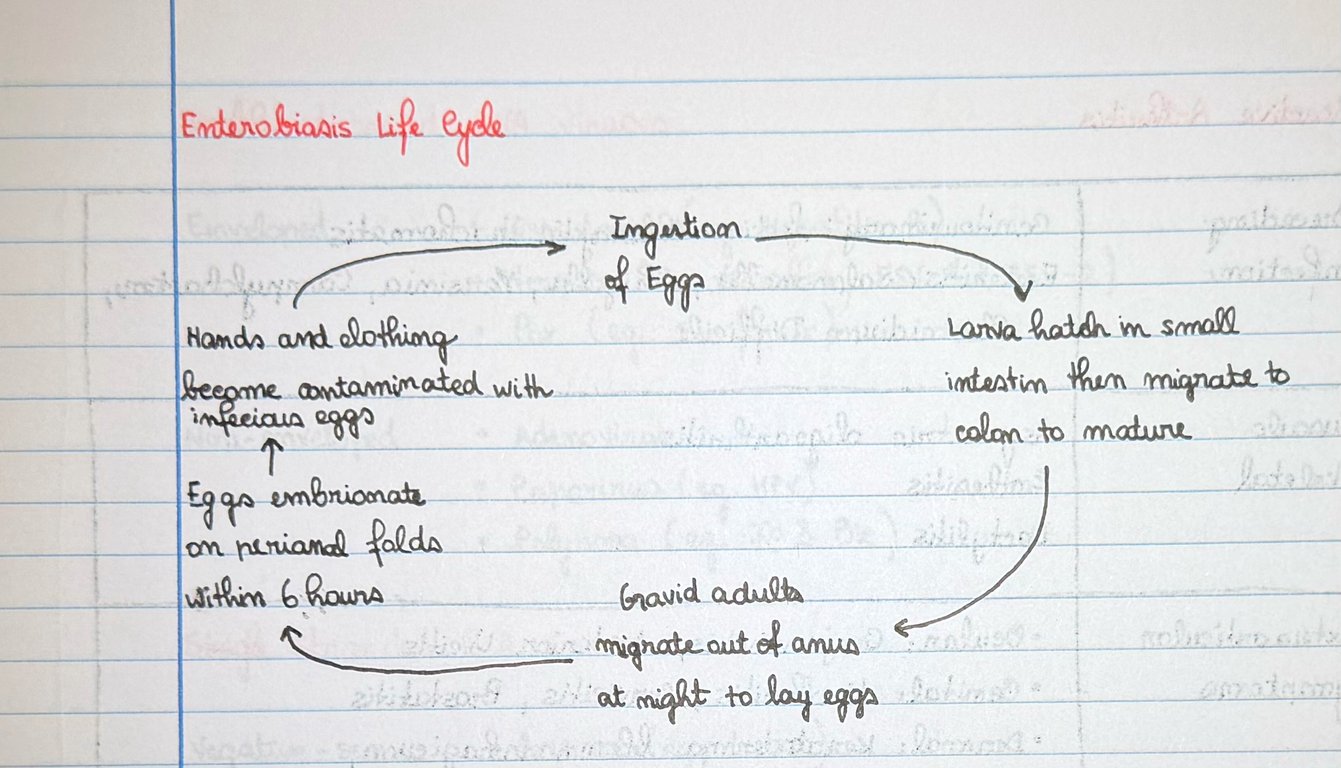 Enterobiasis Life Cycle
Ingestion
of Eggs
Larva hatch in small
intestin then migrate to
colon to mature
Gravid adults
migrate out of anus
at night to lay eggs
Eggs embrionate
on perianal folds
within 6 hours
Hands and clothing
become contaminated with
infecious eggs